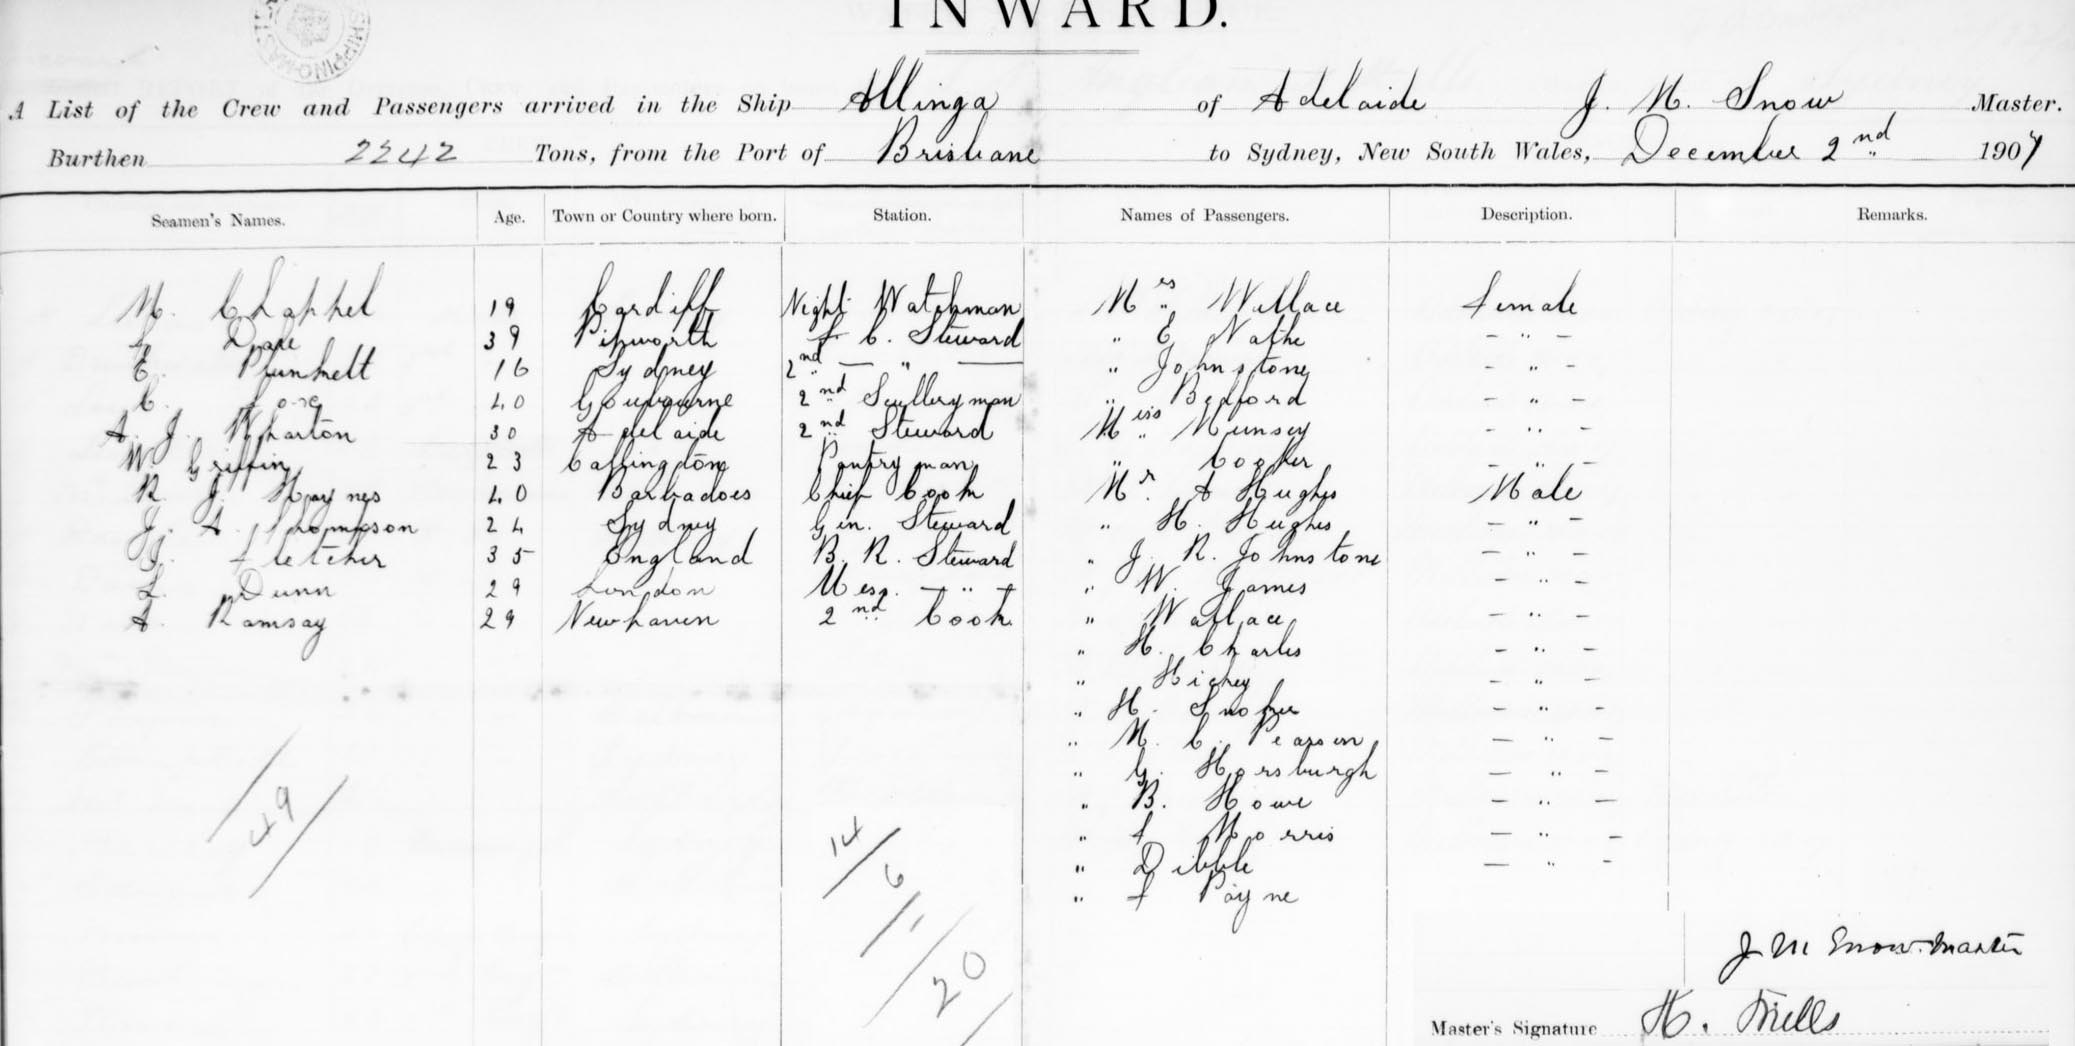 INWARD.
A List of the Crew and Passengers arrived in the Ship Allinga of Adelaide J. M. Snow Master.
Burthen 2242 Tons, from the Port of Brisbane to Sydney, New South Wales, December 2nd 1907
Seamen's Names. Age. Town or Country where born. Station. Names of Passengers. Description. Remarks.
M. Chappel 19 Cardiff Night Watchman Mrs Wallace Female
Dare 39 F. C. Steward " E Nathe - " -
E. Plunkett 16 Sydney 2nd — " — " Johnstone - " -
C. 40 2nd Sculleryman " Bedford - " -
A. J. Wharton 30 Adelaide 2nd Steward Miss Munsey - " -
W. Griffin 23 Pantryman " Cooper - " -
R. J. Haynes 40 Barbadoes Chief Cook Mr. A Hughes Male
J. A. Thompson 24 Sydney Gen. Steward " H. Hughes - " -
J. Fletcher 35 England B. R. Steward " J. R. Johnstone - " -
L. Dunn 29 London Mess. - " - " W. James - " -
A. Ramsay 29 Newhaven 2nd Cook " Wallace - " -
" H. Charles - " -
" Hickey - " -
" H. - " -
" M. C. Pearson - " -
" G. Horsburgh - " -
" B. Howe - " -
" F Morris - " -
" Dibble - " -
" F Payne
49
14
6
20
J M Snow. Master
Master's Signature H. Mills